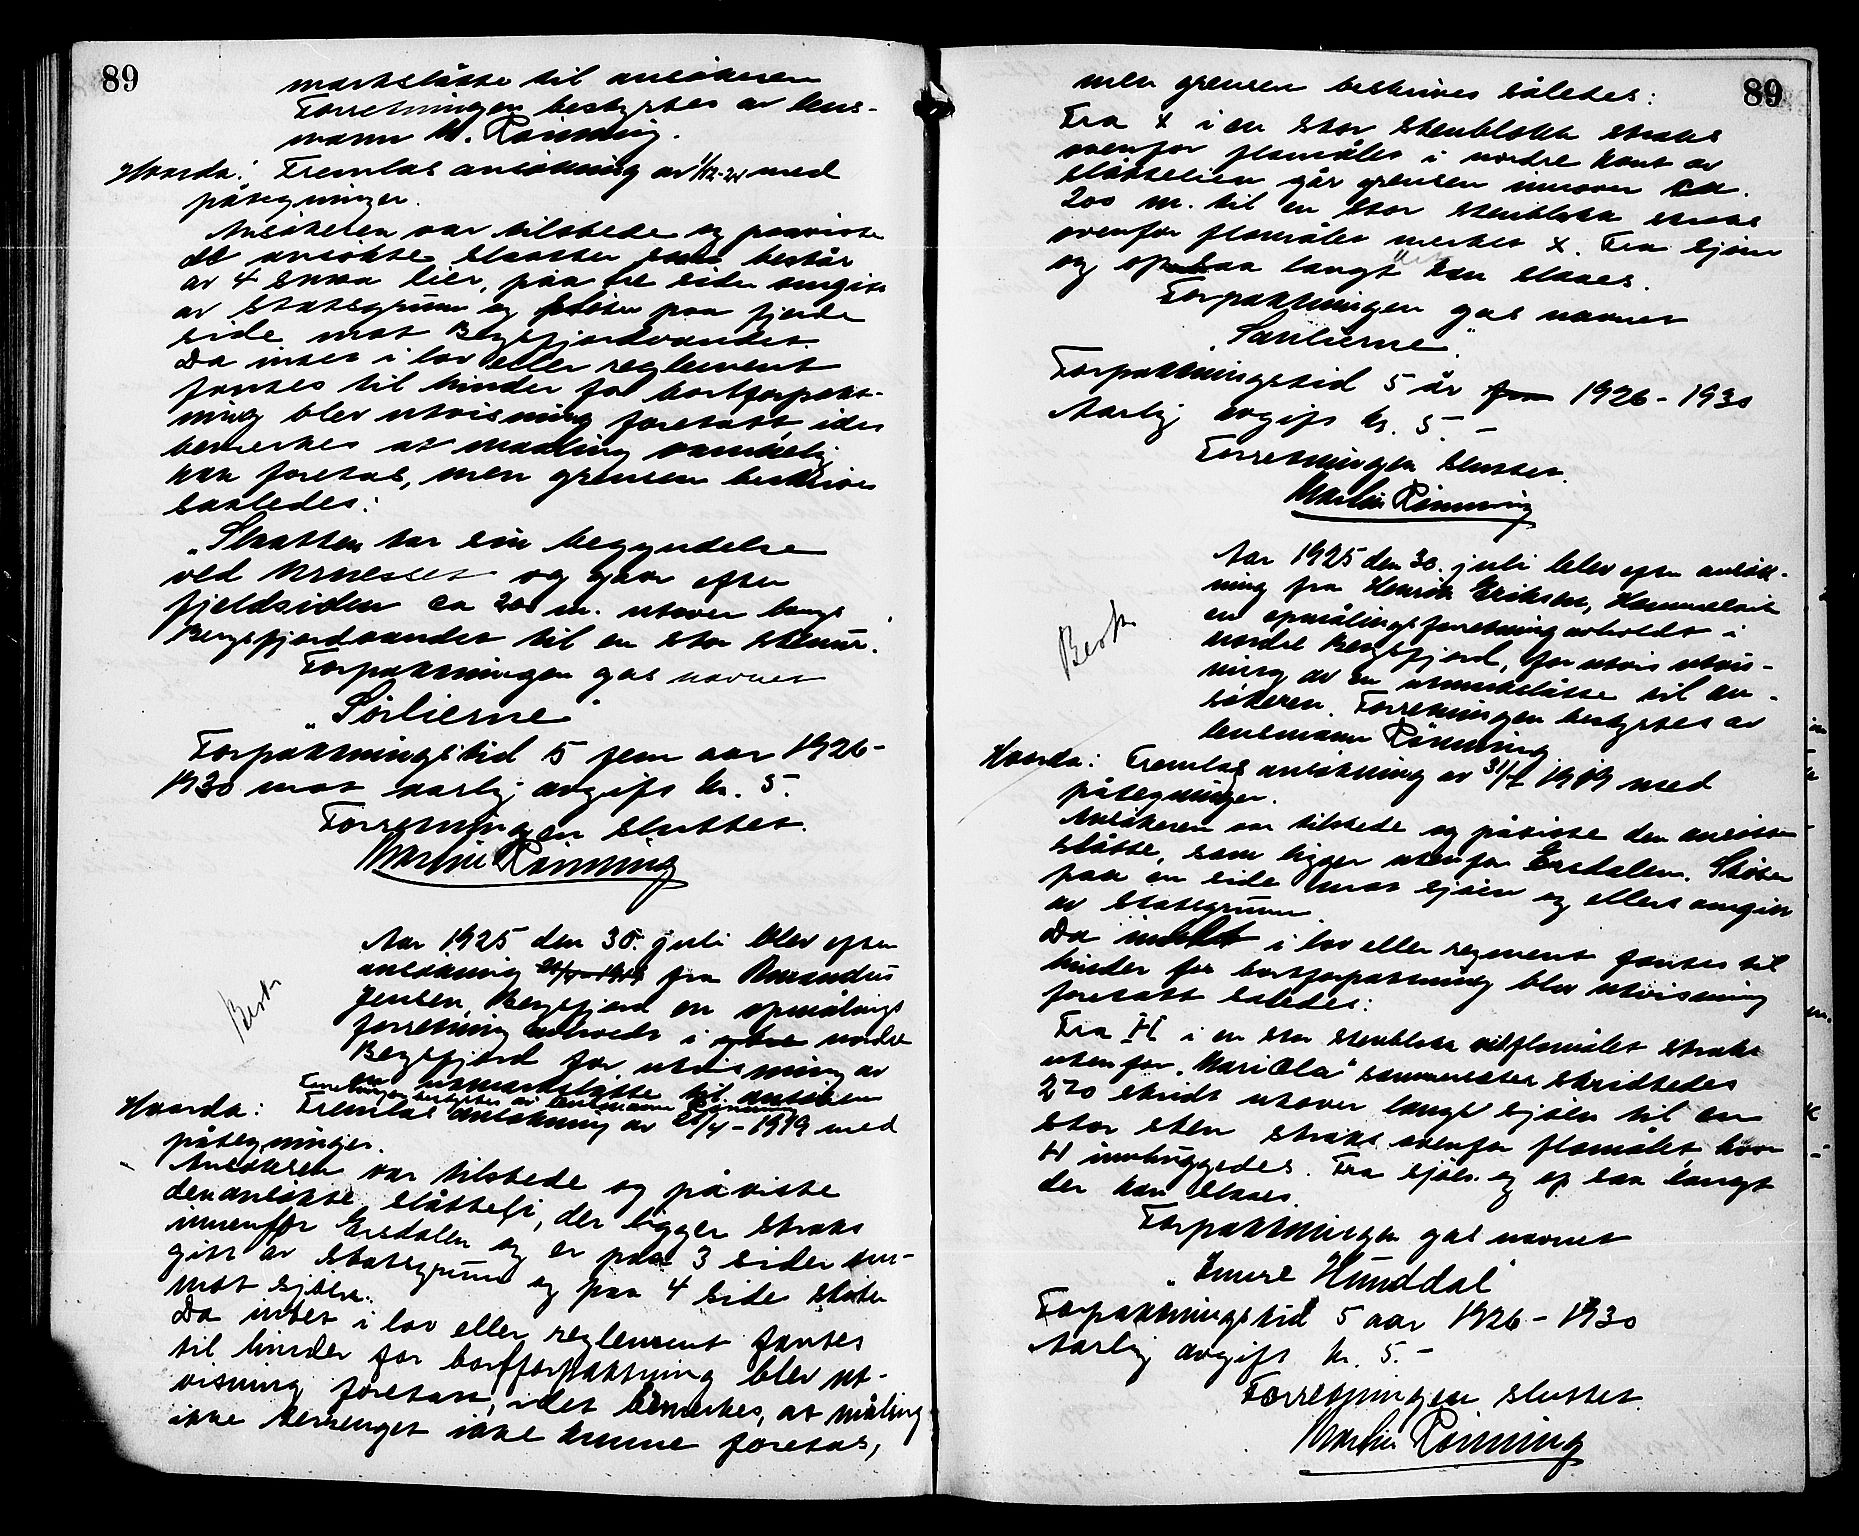 89
markslåtte til ansökeren
Forretningen bestyrtes av lens-
mann M. Rönning.
Hvorda: Fremlas ansökning av 1/12-24 med
påtegninger.
Ansökeren var tilstede og paaviste
de ansökte slaatter som består
av 4 smaa lier, paa tre sider omgitt
av statsgrunn og støter paa fjerde
side mot Bergsfjordvandet.
Da intet i lov eller reglement
fantes til hinder for bortforpakt-
ning blev utvisning foretatt, idet
bemerkes at maaling vanskelig
kan foretas, men grensen beskrives
saaledes:
"Slaatten tar sin begyndelse
ved og gaar efter
fjeldsiden ca 200 m. utover langs
Bergsfjordvandet til en stor stenur.
Forpaktningen gas navnet
"Sörlierne"
Forpaktningstid 5 fem aar 1926-
1930 mot aarlig avgift kr. 5.
Forretningen sluttet.
Martin Rönning
Aar 1925 den 30. juli blev efter
ansökning fra Amandus
Jensen, Bergsfjord en opmålings
forretning avholdt i nordre
Bergsfjord for utvisning av
en utmarkslåtte til ansökeren
Forretningen bestyrtes av lensmann Rönning
Hvorda: Fremlas ansökning av 21/4-1919 med
påtegninger.
Ansökeren var tilstede og påviste
den ansökte slåtteli, der ligger straks
innenfor Ersdalen og er paa 3 sider om-
gitt av statsgrunn og paa 4 side støter
mot sjöen.
Da intet i lov eller reglement fantes
til hinder for bortforpaktning blev ut-
visning foretatt, idet bemerkes, at måling
ikke terrenget ikke kunne foretas,
89
men grensen beskrives således:
Fra x i en stor stenblokk straks
ovenfor flomålet i nordre kant av
slåttelien går grensen innover ca.
200 m. til en stor stenblokk straks
ovenfor flomålet merket x. Fra sjöen
og op saa langt det kan slaaes.
Forpaktningen gas navnet
"Sanlierne".
Forpaktningstid 5 år fra 1926-1930
Aarlig avgift kr. 5.-
Forretningen sluttet.
Martin Rönning
Aar 1925 den 30. juli blev efter ansök-
ning fra Henrik Eriksen, Hammernes
en opmålingsforretning avholdt i
nordre Bergsfjord, for utvis utvis-
ning av en utmarkslåtte til an-
sökeren. Forretningen bestyrtes av
lensmann Rönning
Hvorda: Fremlas ansökning av 31/7 1919 med
påtegninger.
Ansökeren var tilstede og påviste den ansökte
slåtte, som ligger utenfor Ersdalen. Stöter
paa en side mot sjöen og ellers omgitt
av statsgrunn.
Da intet i lov eller regement fantes til
hinder for bortforpaktning blev utvisning
foretatt saledes:
Fra H i en stor stenblokk ved flomålet straks
utenfor "MariOla" sommersæter skridtedes
220 skridt utover langs sjöen til en
stor sten straks ovenfor flomålet, hvor
H innhuggedes. Fra sjöen og op saa langt
der kan slaaes.
Forpaktningen gas navnet
"Indre Hunddal"
Forpaktningstid 5 aar 1926-1930
Aarlig avgift kr. 5.-
Forretningen sluttet.
Martin Rönning